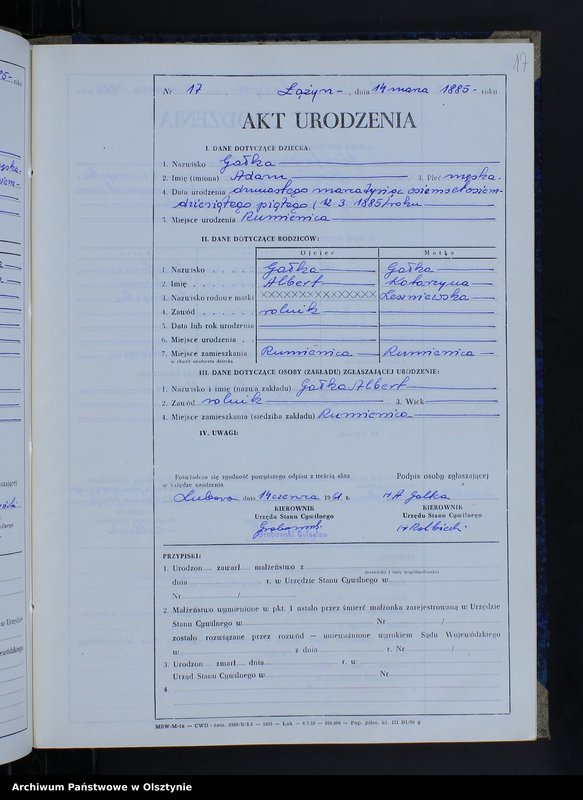 17
Nr 17 Łążyn – , dnia 14 marca 1885 – roku
AKT URODZENIA
I. DANE DOTYCZĄCE DZIECKA:
1. Nazwisko Gałka
2. Imię (imiona) Adam 3. Płeć męska.
4. Data urodzenia dwunastego marca tysiąc osiemset osiem-
dziesiątego piątego (12.3.1885) roku
5. Miejsce urodzenia Rumienica
II. DANE DOTYCZĄCE RODZICÓW:
Ojciec Matka
1. Nazwisko Gałka Gałka
2. Imię Albert Katarzyna
3. Nazwisko rodowe matki XXXXXXXXXXXXX Leśniewska
4. Zawód rolnik
5. Data lub rok urodzenia
6. Miejsce urodzenia
7. Miejsce zamieszkania Rumienica Rumienica
w chwili urodzenia dziecka
III. DANE DOTYCZĄCE OSOBY (ZAKŁADU) ZGŁASZAJĄCEJ URODZENIE:
1. Nazwisko i imię (nazwa zakładu) Gałka Albert
2. Zawód rolnik 3. Wiek
4. Miejsce zamieszkania (siedziba zakładu) Rumienica
IV. UWAGI:
Poświadcza się zgodność powyższego odpisu z treścią aktu
w księdze urodzenia
Podpis osoby zgłaszającej
Lubawa, dnia 14 czerwca 1961 r.
-/ A. Gałka
KIEROWNIK
Urzędu Stanu Cywilnego
KIEROWNIK
Urzędu Stanu Cywilnego
PRZYPISKI:
1. Urodzon zawarł małżeństwo z
(nazwisko i imię współmałżonka)
dnia r. w Urzędzie Stanu Cywilnego w
Nr /
2. Małżeństwo wymienione w pkt. 1 ustało przez śmierć małżonka zarejestrowaną w Urzędzie
Stanu Cywilnego w Nr /
zostało rozwiązane przez rozwód – unieważnione wyrokiem Sądu Wojewódzkiego
w z dnia r. Nr /
3. Urodzon zmarł dnia r. w
Urząd Stanu Cywilnego w Nr
4.
Archiwum Państwowe w Olsztynie